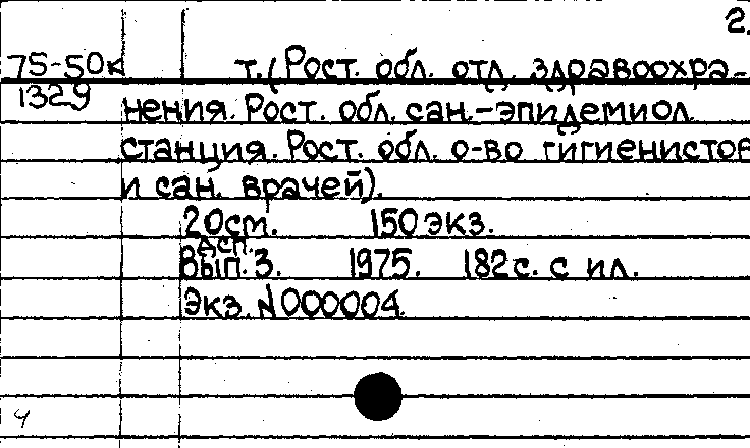 2.
75-50к т. (Рост. обл. отд. здравоохра-
1329 нения. Рост. обл. сан.-эпидемиол.
станция. Рост. обл. о-во гигиенистов
и сан. врачей).
20см. 150 экз.
ДСП.
Вып. 3. 1975. 182 с. с ил.
Экз. N000004.
ч